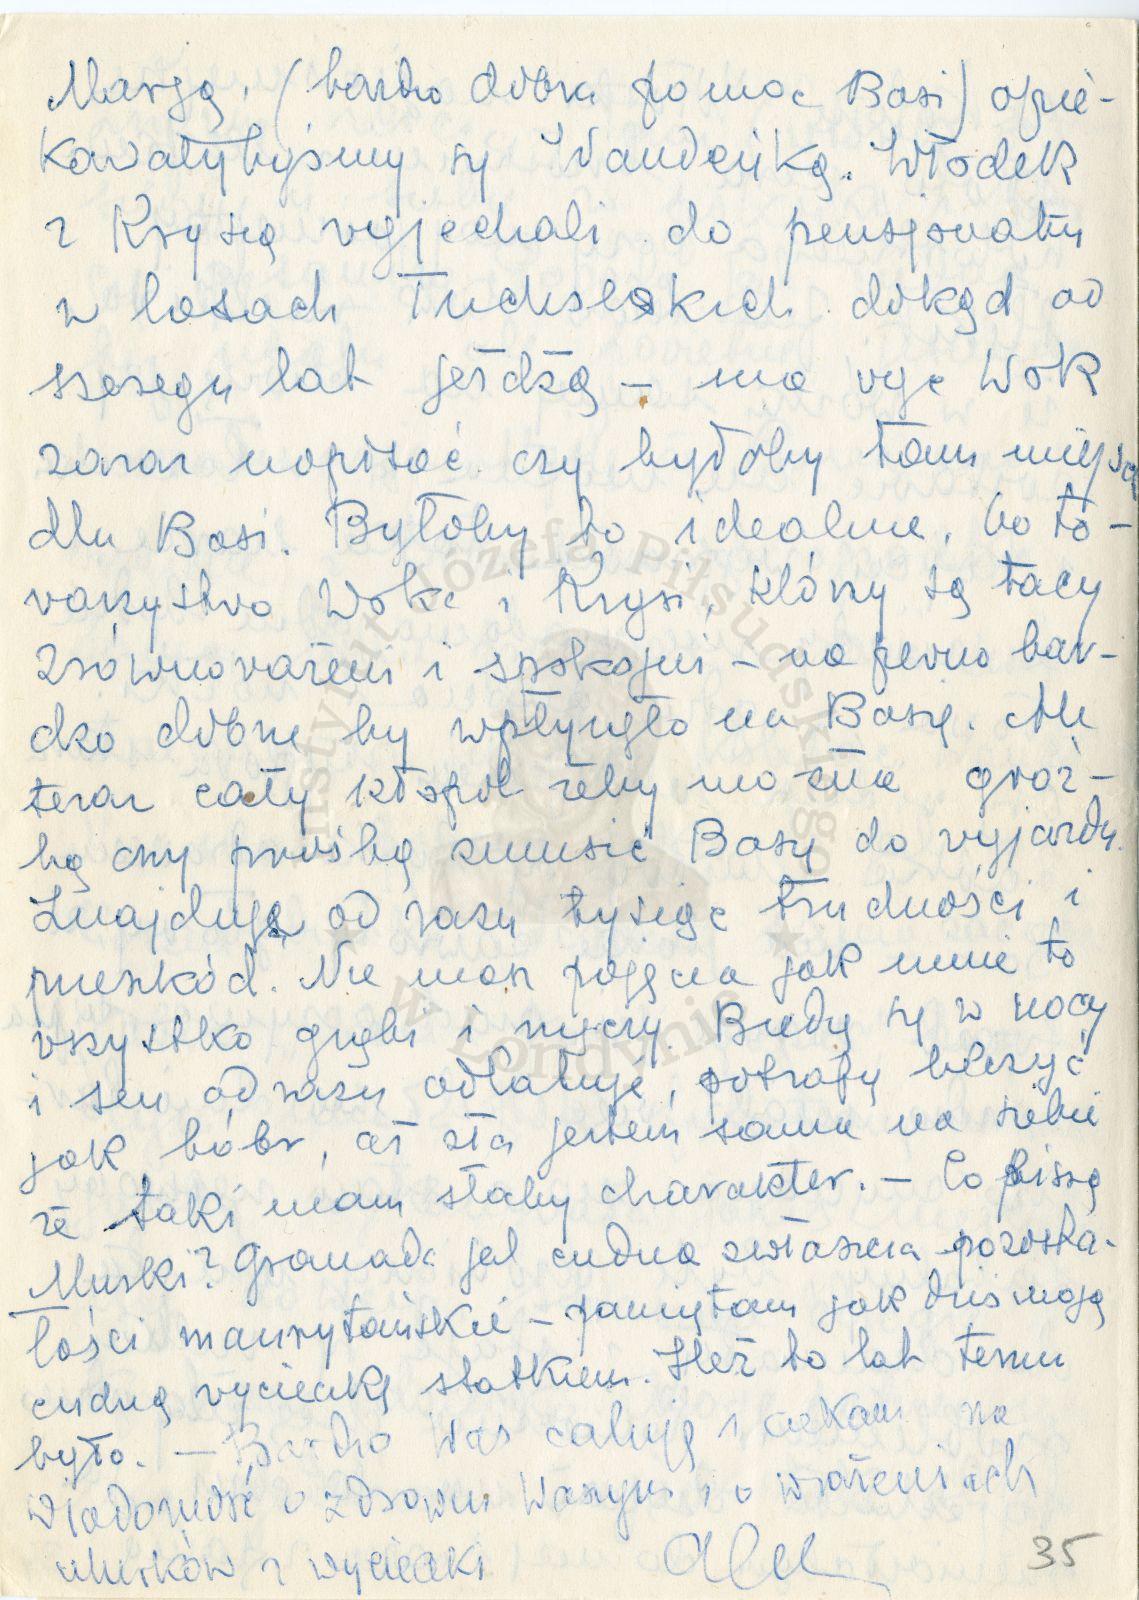 Marją, (bardzo dobra pomoc Basi) opie-
kowałybyśmy się Wandeńką. Włodek
z Krysią wyjechali do pensjonatu
w lasach Tucholskich dokąd od
szeregu lat jeżdżą – ma więc Wok
zaraz napisać czy byłoby tam miejsce
dla Basi. Byłoby to idealne, bo to-
warzystwo Woka i Krysi, którzy są tacy
zrównoważeni i spokojni – na pewno bar-
dzo dobrze by wpłynęło na Basię. Ale
teraz cały kłopot żeby można groź-
bą czy prośbą zmusić Basię do wyjazdu.
Znajduje od razu tysiąc trudności i
przeszkód. Nie masz pojęcia jak mnie to
wszystko gnębi i męczy. Budzę się w nocy
i sen od razu odlatuje, potrafię beczyć
jak bóbr, aż zła jestem sama na siebie
że taki mam słaby charakter. – Co piszą
Murki? Granada jest cudna zwłaszcza pozosta-
łości maurytańskie – pamiętam jak dziś moją
cudną wycieczkę statkiem. Ileż to lat temu
było. – Bardzo Was całuję i czekam na
wiadomość o zdrowiu Waszym i o wrażeniach
Murków z wycieczki
35
Instytut Józefa Piłsudskiego
w Londynie